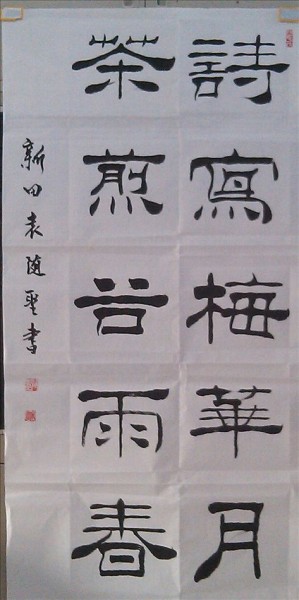 詩寫梅華月
茶煎谷雨春
新田袁随聖書